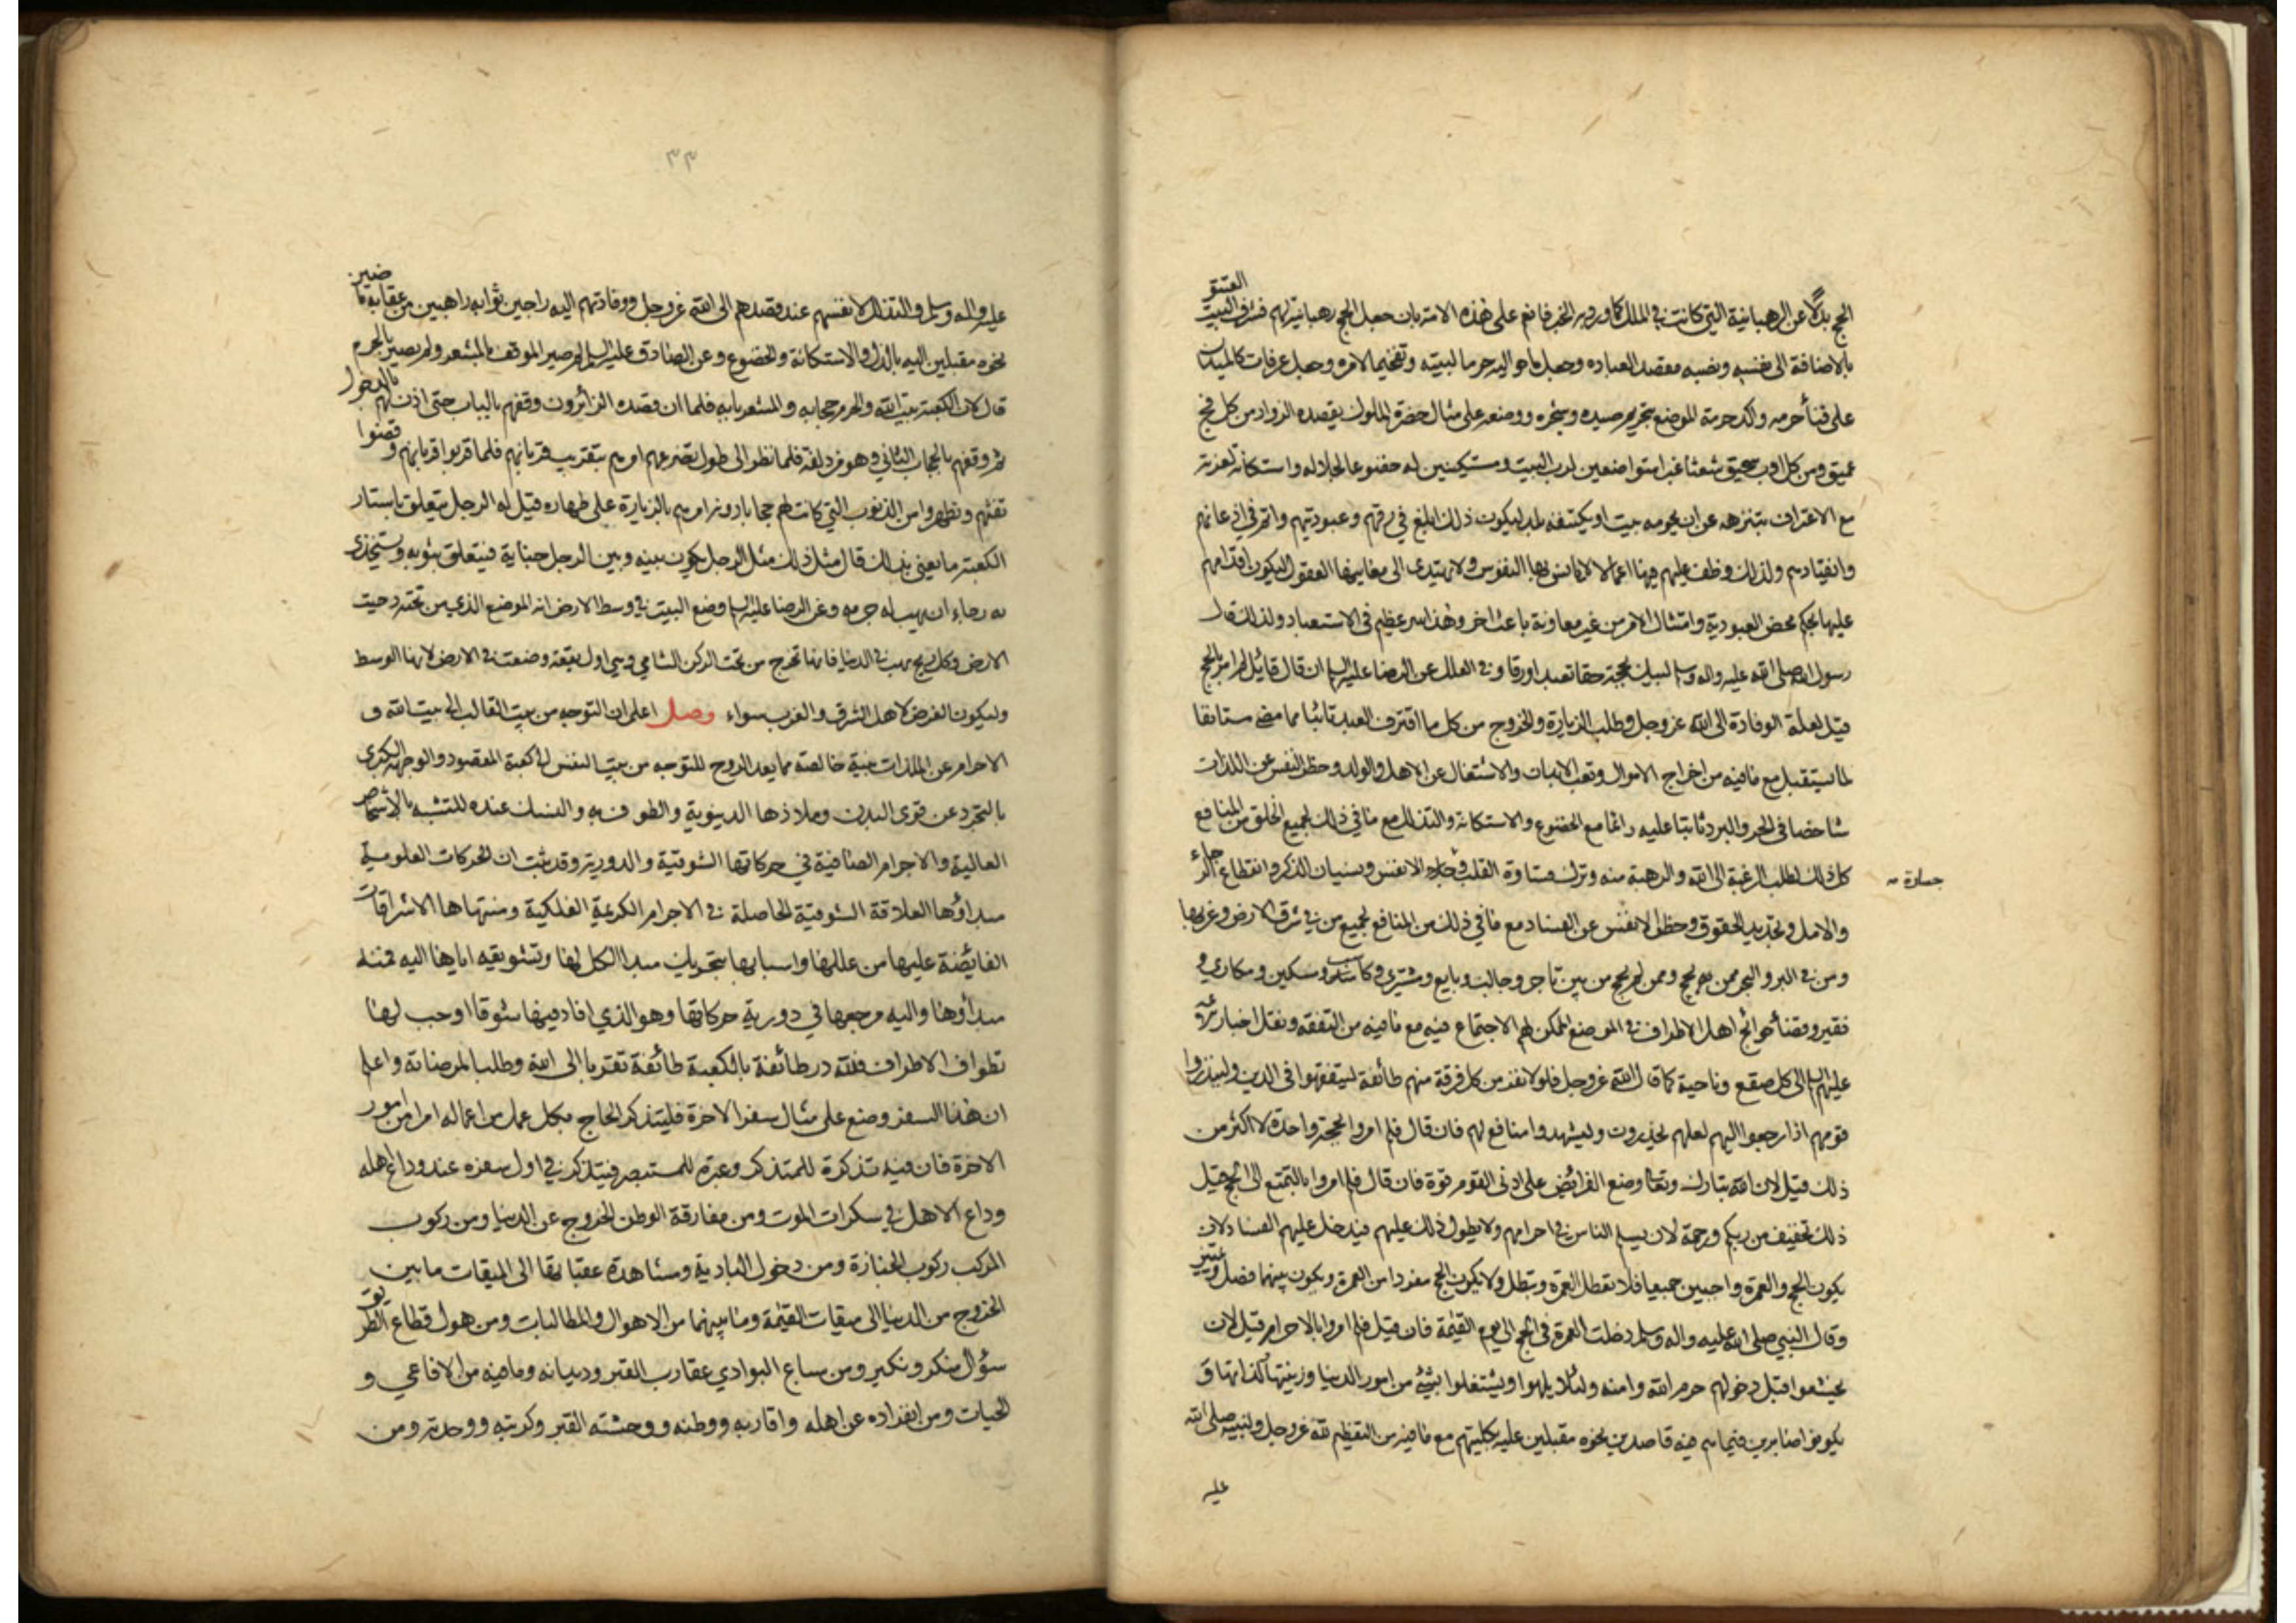 الحج بدلا عن الرهبانية التي كانت في الملل كما ورد به الخبر فانعم على هذه الامة بان جعل الحج رهبانية لهم فشرف البيت العتيق
بالاضافة الى نفسه ونصبه مقصد العباده وجعل ما حواليه حرما لبيته وتفخيما لامره وجعل عرفات كالميدان
على فناء حرمه واكد حرمة الموضع بتحريم صيده وشجره ووضعه على مثال حضرة الملوك يقصده الزوار من كل فج
عميق ومن كل اوب سحيق شعثا غبرا متواضعين لرب البيت ومستكينين له خضوعا لجلاله واستكانة لعزته
مع الاعتراف بتنزهه عن ان يحويه بيت او يكتنفه بلد ليكون ذلك ابلغ في رقهم وعبوديتهم واتم في اذعانهم
وانقيادهم ولذلك وظف عليهم فيها اعمالا لا يانس بها النفوس ولا يهتدى الى معانيها العقول ليكون اقدامهم
عليها بحكم محض العبودية وامتثال الامر من غير معاونة باعث اخر وهذا سر عظيم في الاستعباد ولذلك قال
رسول الله صلى الله عليه واله وسلم لبيك بحجة حقا تعبدا ورقا وفي العلل عن الرضا عليه السلام ان قال قائل لم امر بالحج
قيل لعلة الوفادة الى الله عز وجل وطلب الزيارة والخروج من كل ما اقترف العبد تائبا مما مضى مستانفا
لما يستقبل مع ما فيه من اخراج الاموال وتعب الابدان والاشتغال عن الاهل والولد وحظر النفس عن اللذات
شاخصا في الحر والبرد ثابتا عليه دائما مع الخضوع والاستكانة والتذلل مع ما في ذلك لجميع الخلق من المنافع
كل ذلك لطلب الرغبة الى الله والرهبة منه وترك قساوة القلب وخساره الانفس ونسيان الذكر وانقطاع الرجاء
جسارة
والامل وتجديد الحقوق وحظر الانفس عن الفساد مع ما في ذلك من المنافع لجميع من في شرق الارض وغربها
ومن في البر والبحر ممن يحج وممن لم يحج من بين تاجر وجالب وبايع ومشتري وكاسب ومسكين ومكاري و
فقير وقضاء حوائج اهل الاطراف في المواضع الممكن لهم الاجتماع فيه مع ما فيه من التفقه ونقل اخبار الائمة
عليهم السلام الى كل صقع وناحية كما قال الله عز وجل فلولا نفر من كل فرقة منهم طائفة ليتفقهوا في الدين ولينذروا
قومهم اذا رجعوا اليهم لعلهم يحذرون وليشهدوا منافع لهم فان قال فلم امروا بحجة واحدة لا اكثر من
ذلك قيل لان الله تبارك وتعالى وضع الفرائض على ادنى القوم قوة فان قال فلم امروا بالتمتع الى الحج قيل
ذلك تخفيف من ربكم ورحمة لان يسلم الناس في احرامهم ولا يطول ذلك عليهم فيدخل عليهم الفساد ولان
يكون الحج والعمرة واجبين جميعا فلا تعطل العمرة وتبطل ولا يكون الحج مفردا من العمرة ويكون بينهما فصل وتمييز
وقال النبي صلى الله عليه واله وسلم دخلت العمرة في الحج الى يوم القيمة فان قيل فلم امروا بالاحرام قيل لان
يخشعوا قبل دخولهم حرم الله وامنه ولئلا يلهوا ويشتغلوا بشئ من امور الدنيا وزينتها ولذاتها و
يكونوا صابرين فيما هم فيه قاصدين نحوه مقبلين عليه بكليتهم مع ما فيه من التعظيم لله عز وجل ولنبيه صلى الله
عليه
٣٣
عليه واله وسلم والتذلل لانفسهم عند قصدهم الى الله عز وجل ووفادتهم اليه راجين ثوابه راهبين من عقابه ماضين
نحوه مقبلين اليه بالذل والاستكانة والخضوع وعن الصادق عليه السلام لم صير الموقف بالمشعر ولم يصير بالحرم
قال لان الكعبة بيت الله والحرم حجابه والمشعر بابه فلما ان قصده الزائرون وقفهم بالباب حتى اذن لهم بالدخول
ثم وقفهم بالحجاب الثاني وهو مزدلفة فلما نظر الى طول تضرعهم امرهم بتقريب قربانهم فلما قربوا قربانهم وقضوا
تفثهم وتطهروا من الذنوب التي كانت لهم حجابا دونه امرهم بالزيارة على طهارة قيل له الرجل يتعلق باستار
الكعبة ما يعني بذلك قال مثل ذلك مثل الرجل يكون بينه وبين الرجل جناية فيتعلق بثوبه ويستخذى
له رجاء ان يهب له جرمه وعن الرضا عليه السلام وضع البيت في وسط الارض انه الموضع الذي من تحته دحيت
الارض وكل ريح تهب في الدنيا فانها تخرج من تحت الركن الشامي وهي اول بقعة وضعت في الارض لانها الوسط
وليكون الفرض لاهل الشرق والغرب سواء وصل اعلم ان التوجه من بيت القالب الى بيت الله و
الاحرام عن الملذات بنية خالصة مما يعد الروح للتوجه من بيت النفس الى كعبة المقصود والوجهة الكبرى
بالتجرد عن قوى البدن وملاذها الدنيوية والطوف به والنسك عنده للتشبه بالاشخاص
العالية والاجرام الصافية في حركاتها الشوقية والدورية وقد ثبت ان الحركات العلوية
مبداؤها العلاقة الشوقية الحاصلة في الاجرام الكريمة الفلكية ومنتهاها الاشراقات
الفائضة عليها من عللها واسبابها بتحريك مبدا الكل لها وتشويقه اياها اليه فمنه
مبداؤها واليه مرجعها في دورية حركاتها وهو الذي افاد فيها شوقا اوجب لها
تطواف الاطراف فلله در طائفة بالكعبة طائفة تقربا الى الله وطلبا لمرضاته واعلم
ان هذا السفر وضع على مثال سفر الاخرة فليتذكر الحاج بكل عمل من اعماله امرا من امور
الاخرة فان فيه تذكرة للمتذكر وعبرة للمستبصر فيتذكر في اول سفره عند وداع اهله
وداع الاهل في سكرات الموت ومن مفارقة الوطن الخروج عن الدنيا ومن ركوب
المركب ركوب الجنازة ومن دخول البادية ومشاهدة عقباتها الى الميقات ما بين
الخروج من الدنيا الى ميقات القيمة وما بينهما من الاهوال والمطالبات ومن هول قطاع الطريق
سؤال منكر ونكير ومن سباع البوادي عقارب القبر وديدانه وما فيه من الافاعي و
الحيات ومن انفراده عن اهله واقاربه ووطنه ووحشته القبر وكربته ووحدته ومن